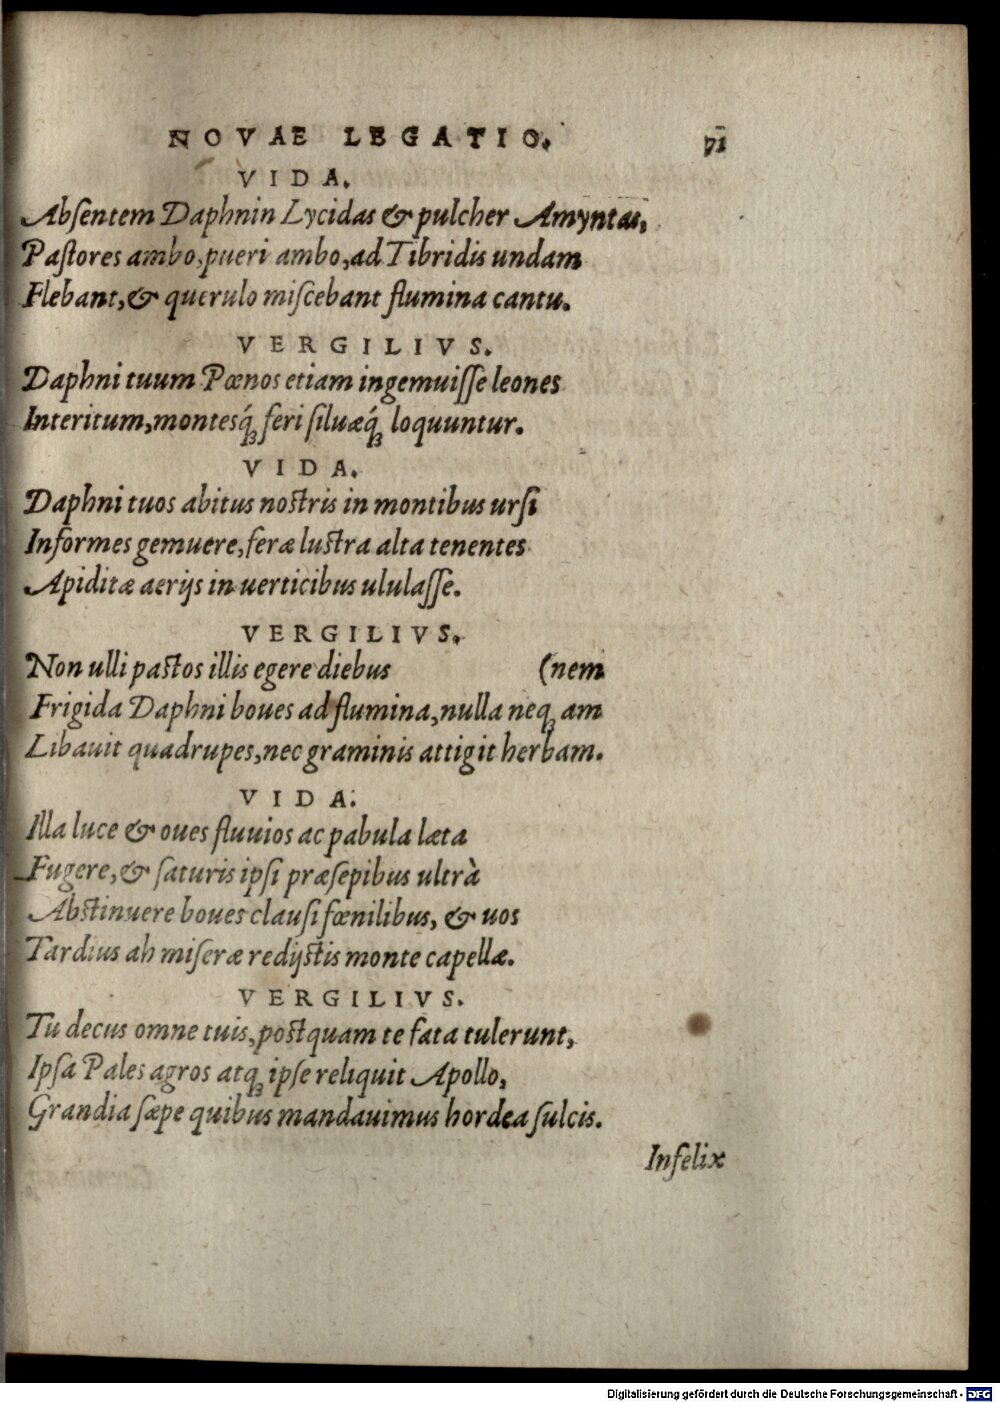 NOVAE LEGATIO. 71
VIDA.
Abſentem Daphnin Lycidas & pulcher Amyntas,
Paſtores ambo, pueri ambo, ad Tibridis undam
Flebant, & querulo miſcebant flumina cantu.
VERGILIVS.
Daphni tuum Pœnos etiam ingemuiſſe leones
Interitum, montesq́; feri ſiluæq́; loquuntur.
VIDA.
Daphni tuos abitus noſtris in montibus urſi
Informes gemuere, feræ luſtra alta tenentes
Apiditæ aerijs in uerticibus ululaſſe.
VERGILIVS.
Non ulli paſtos illis egere diebus (nem
Frigida Daphni boues ad flumina, nulla neq; am
Libauit quadrupes, nec graminis attigit herbam.
VIDA.
Illa luce & oues fluuios ac pabula læta
Fugere, & ſaturis ipſi præſepibus ultrà
Abſtinuere boues clauſi fœnilibus, & uos
Tardius ah miſeræ redijſtis monte capellæ.
VERGILIVS.
Tu decus omne tuis, poſtquam te fata tulerunt,
Ipſa Pales agros atq; ipſe reliquit Apollo,
Grandia ſæpe quibus mandauimus hordea ſulcis.
Infelix
Digitalisierung gefördert durch die Deutsche Forschungsgemeinschaft - DFG